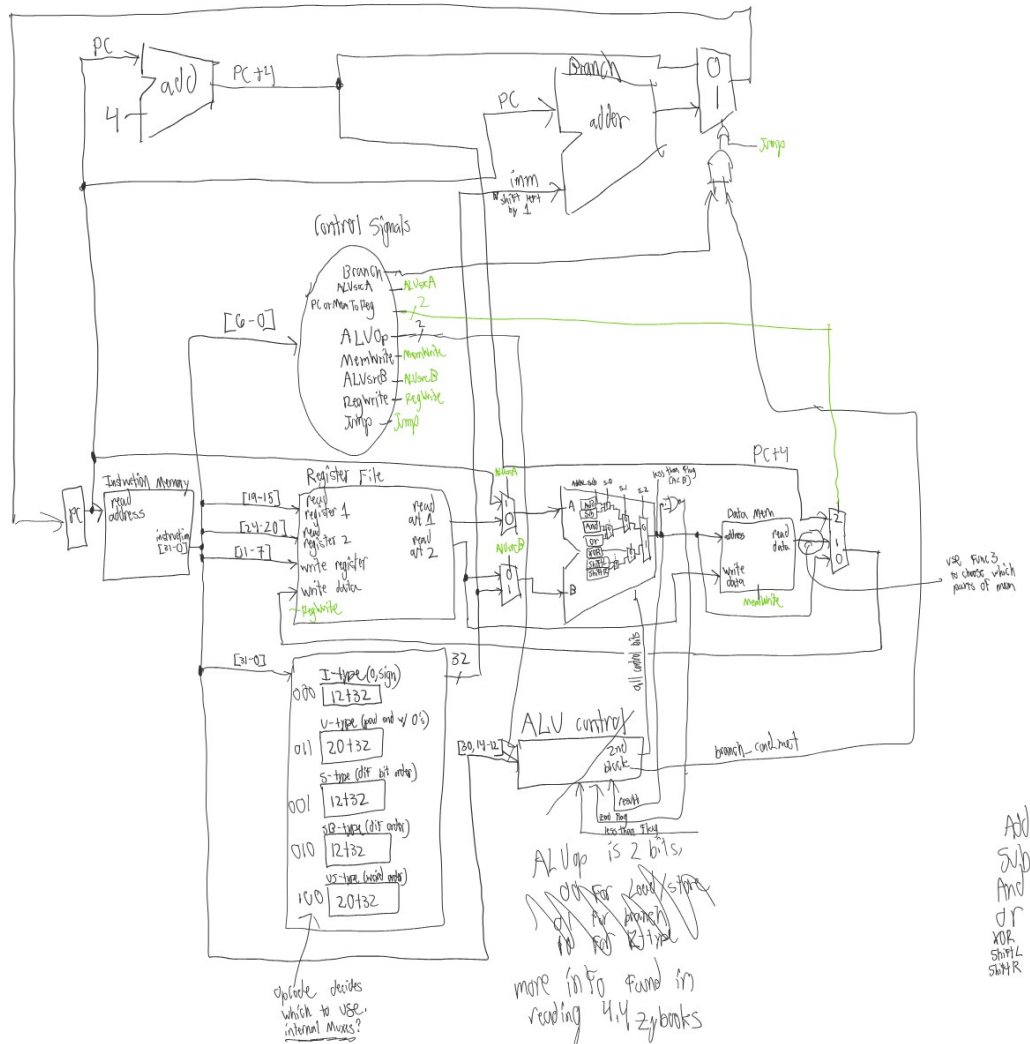 PC
add
4
PC+4
Branch
adder
PC
imm
shift left
by 1
0
1
Jump
Control Signals
Branch
ALUsrcA
ALUsrcA
PCorMemToReg
2
ALUOp
2
MemWrite
MemWrite
ALUsrcB
ALUsrcB
RegWrite
RegWrite
Jump
Jump
[6-0]
PC
Instruction Memory
read
address
instruction
[31-0]
Register File
[19-15]
read
register 1
[24-20]
read
register 2
[11-7]
write register
write data
RegWrite
read
read
ALUsrcA
1
0
ALUsrcB
0
1
A
B
Add
And
Or
XOR
ShiftL
ShiftR
less than flag
(A<B)
PC+4
Data Mem
address
read
data
write
data
MemWrite
2
1
0
use Func3
to choose which
parts of mem
[31-0]
32
I-type (0, sign)
000
12→32
U-type (pad end w/ 0's)
011
20→32
S-type (dif bit order)
001
12→32
SB-type (dif order)
010
12→32
UJ-type (weird order)
100
20→32
opcode decides
which to use.
internal Muxes?
all control bits
ALU control
[30,14-12]
2nd
block
branch_cond_met
result
less than flag
ALUop is 2 bits,
00 for Load/store
01 for branch
10 for R-type
more info found in
reading 4.4 zybooks
Add
Sub
And
or
XOR
ShiftL
ShiftR